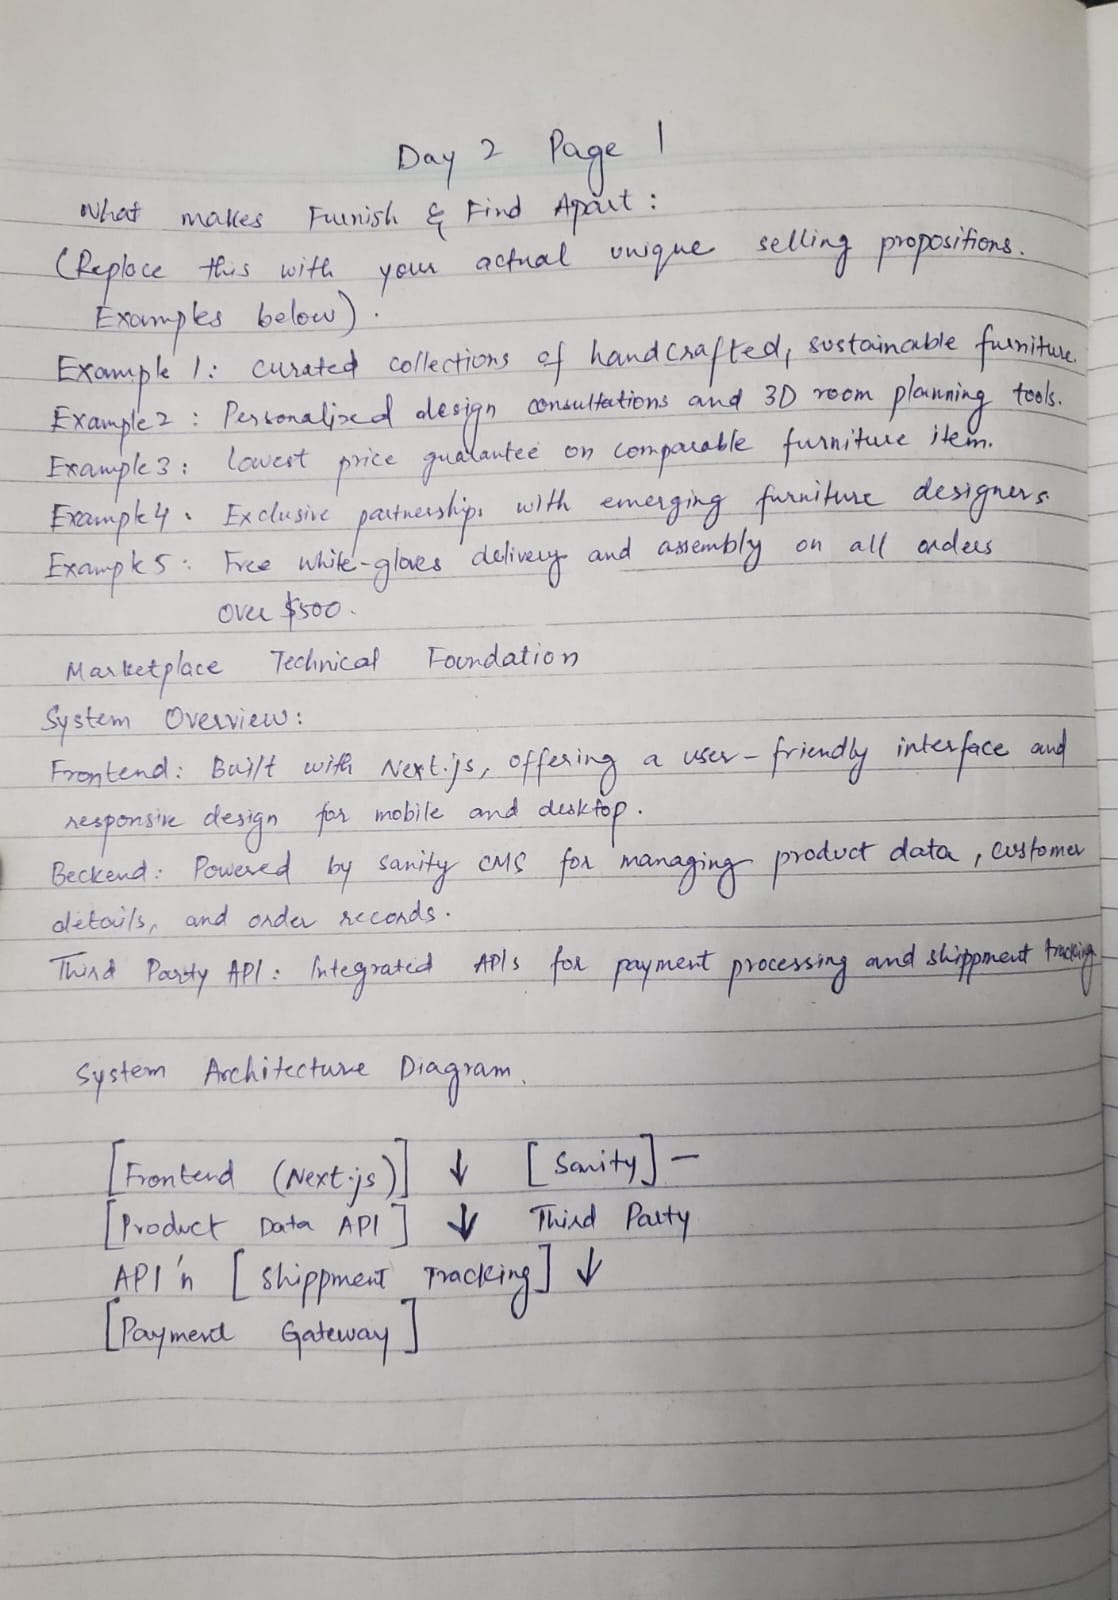 Day 2 Page 1
What makes Furnish & Find Apart :
(Replace this with your actual unique selling propositions.
Examples below) .
Example 1 : curated collections of handcrafted, sustainable furniture.
Example 2 : Personalized design consultations and 3D room planning tools.
Example 3 : lowest price guarantee on comparable furniture item.
Example 4 . Exclusive partnerships with emerging furniture designers
Example 5 : Free white-gloves delivery and assembly on all orders
over $500 .
Marketplace Technical Foundation
System Overview :
Frontend : Built with Next.js, offering a user-friendly interface and
responsive design for mobile and desktop .
Beckend : Powered by sanity CMS for managing product data , customer
details, and order records .
Third Party API : Integrated APIs for payment processing and shippment tracking
System Architecture Diagram.
[Frontend (Next.js)] ↓ [Sanity] -
[Product Data API] ↓ Third Party
API'n [Shippment Tracking] ↓
[Payment Gateway]